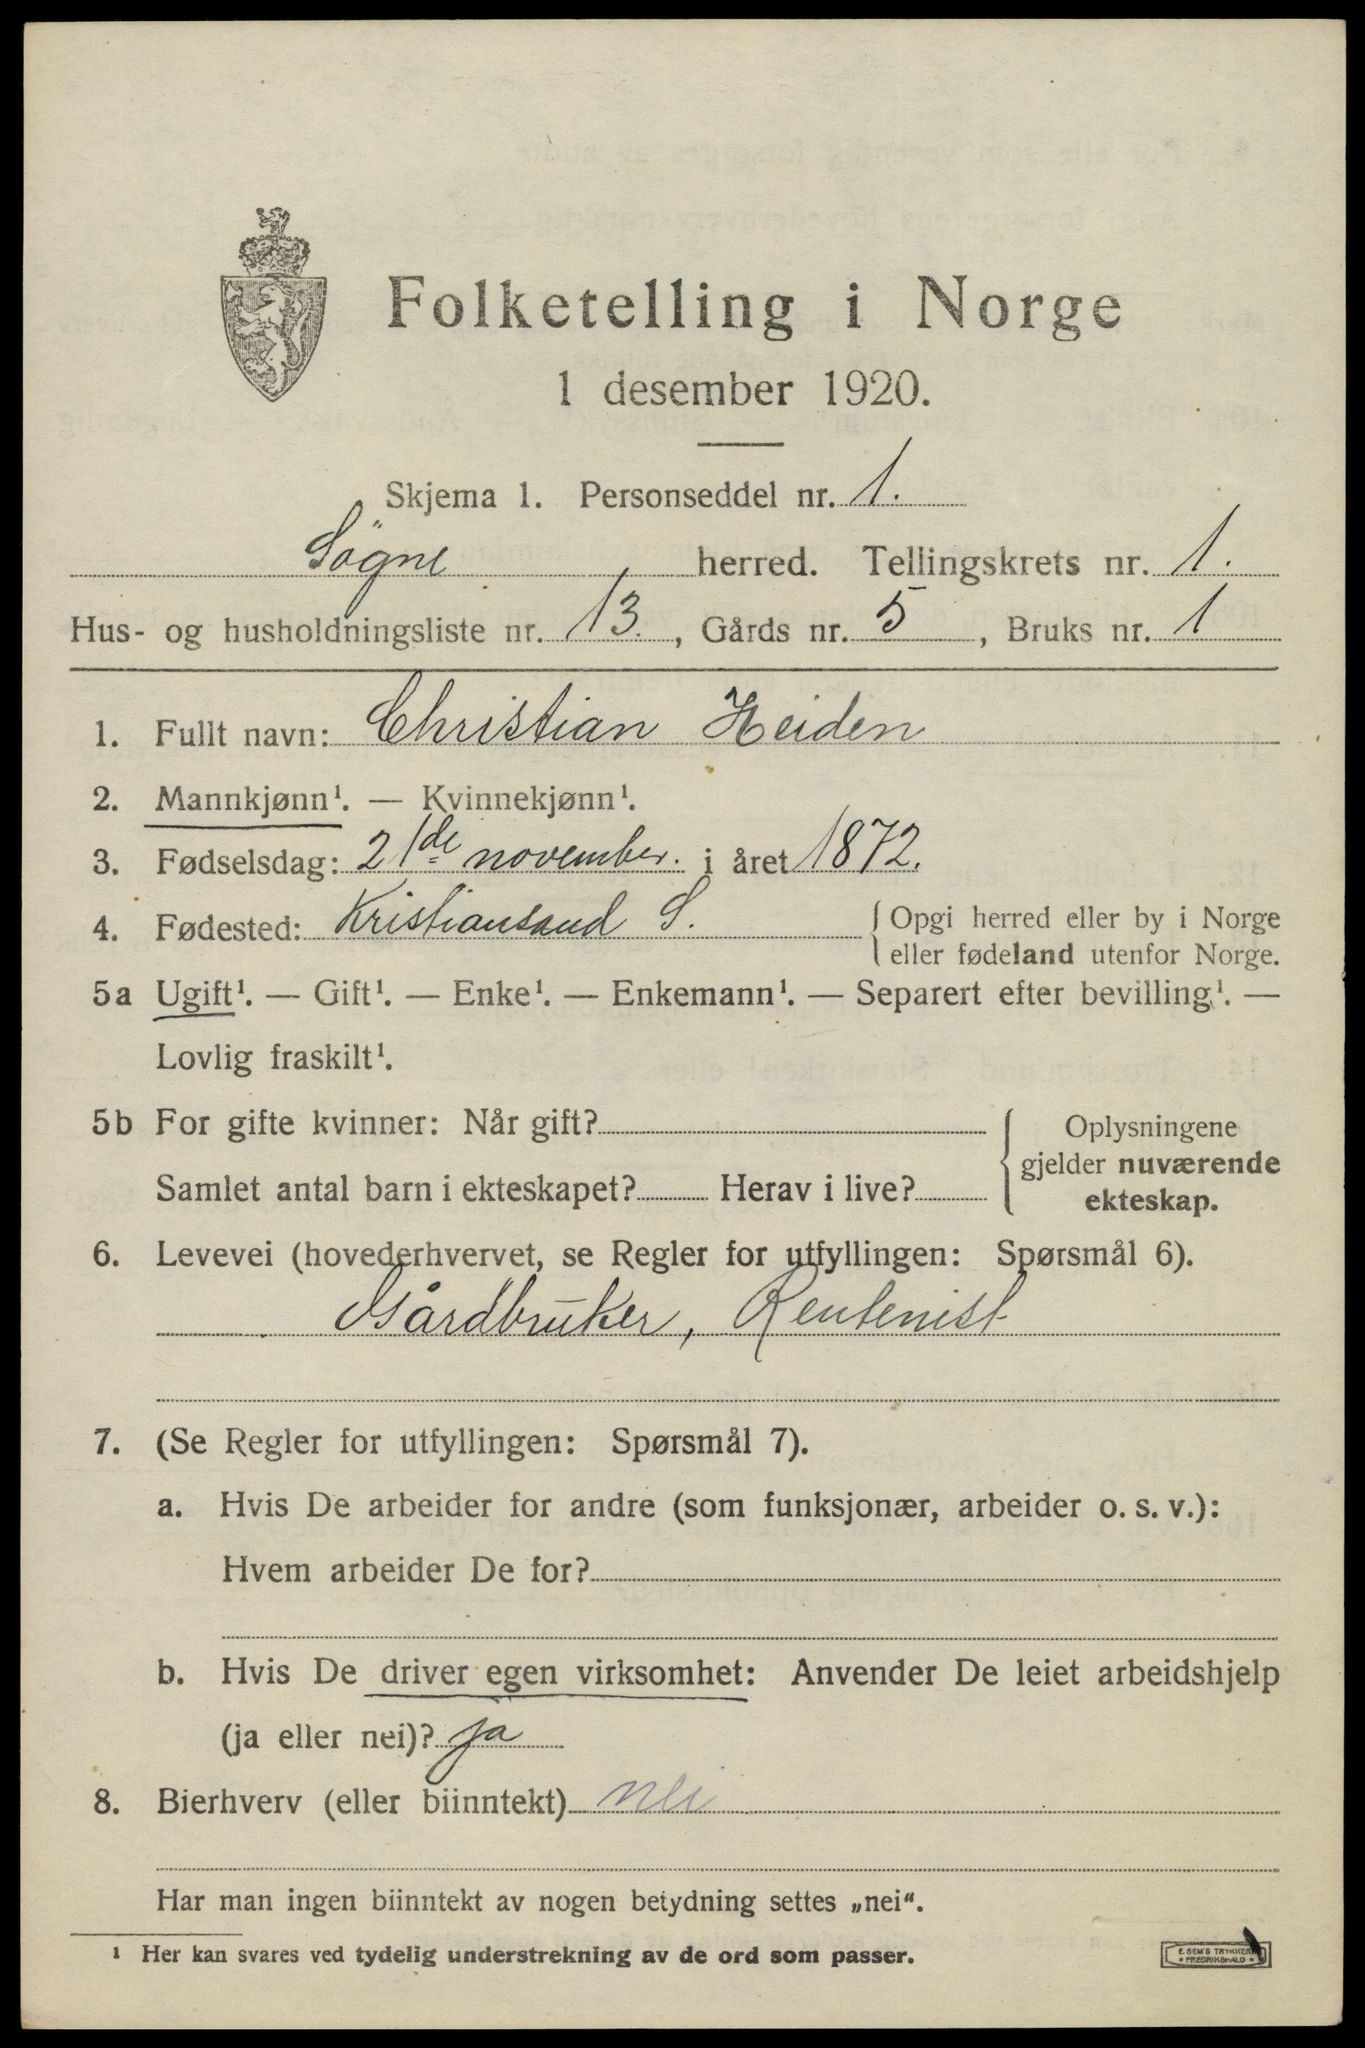 Folketelling i Norge
1 desember 1920.
Skjema 1. Personseddel nr. 1.
Søgne herred. Tellingskrets nr. 1.
Hus- og husholdningsliste nr. 13., Gårds nr. 5, Bruks nr. 1
1. Fullt navn: Christian Heiden
2. Mannkjønn¹. — Kvinnekjønn¹.
3. Fødselsdag: 21de november. i året 1872.
4. Fødested: Kristiansand S. { Opgi herred eller by i Norge
eller fødeland utenfor Norge.
5a Ugift¹. — Gift¹. — Enke¹. — Enkemann¹. — Separert efter bevilling¹. —
Lovlig fraskilt¹.
5b For gifte kvinner: Når gift? { Oplysningene
gjelder nuværende
Samlet antal barn i ekteskapet? Herav i live? ekteskap.
6. Levevei (hovederhvervet, se Regler for utfyllingen: Spørsmål 6).
Gårdbruker, Rentenist
7. (Se Regler for utfyllingen: Spørsmål 7).
a. Hvis De arbeider for andre (som funksjonær, arbeider o. s. v.):
Hvem arbeider De for?
b. Hvis De driver egen virksomhet: Anvender De leiet arbeidshjelp
(ja eller nei)? ja
8. Bierhverv (eller biinntekt) nei
Har man ingen biinntekt av nogen betydning settes „nei“.
¹ Her kan svares ved tydelig understrekning av de ord som passer.
E. SEM'S TRYKKERI
FREDRIKSHALD